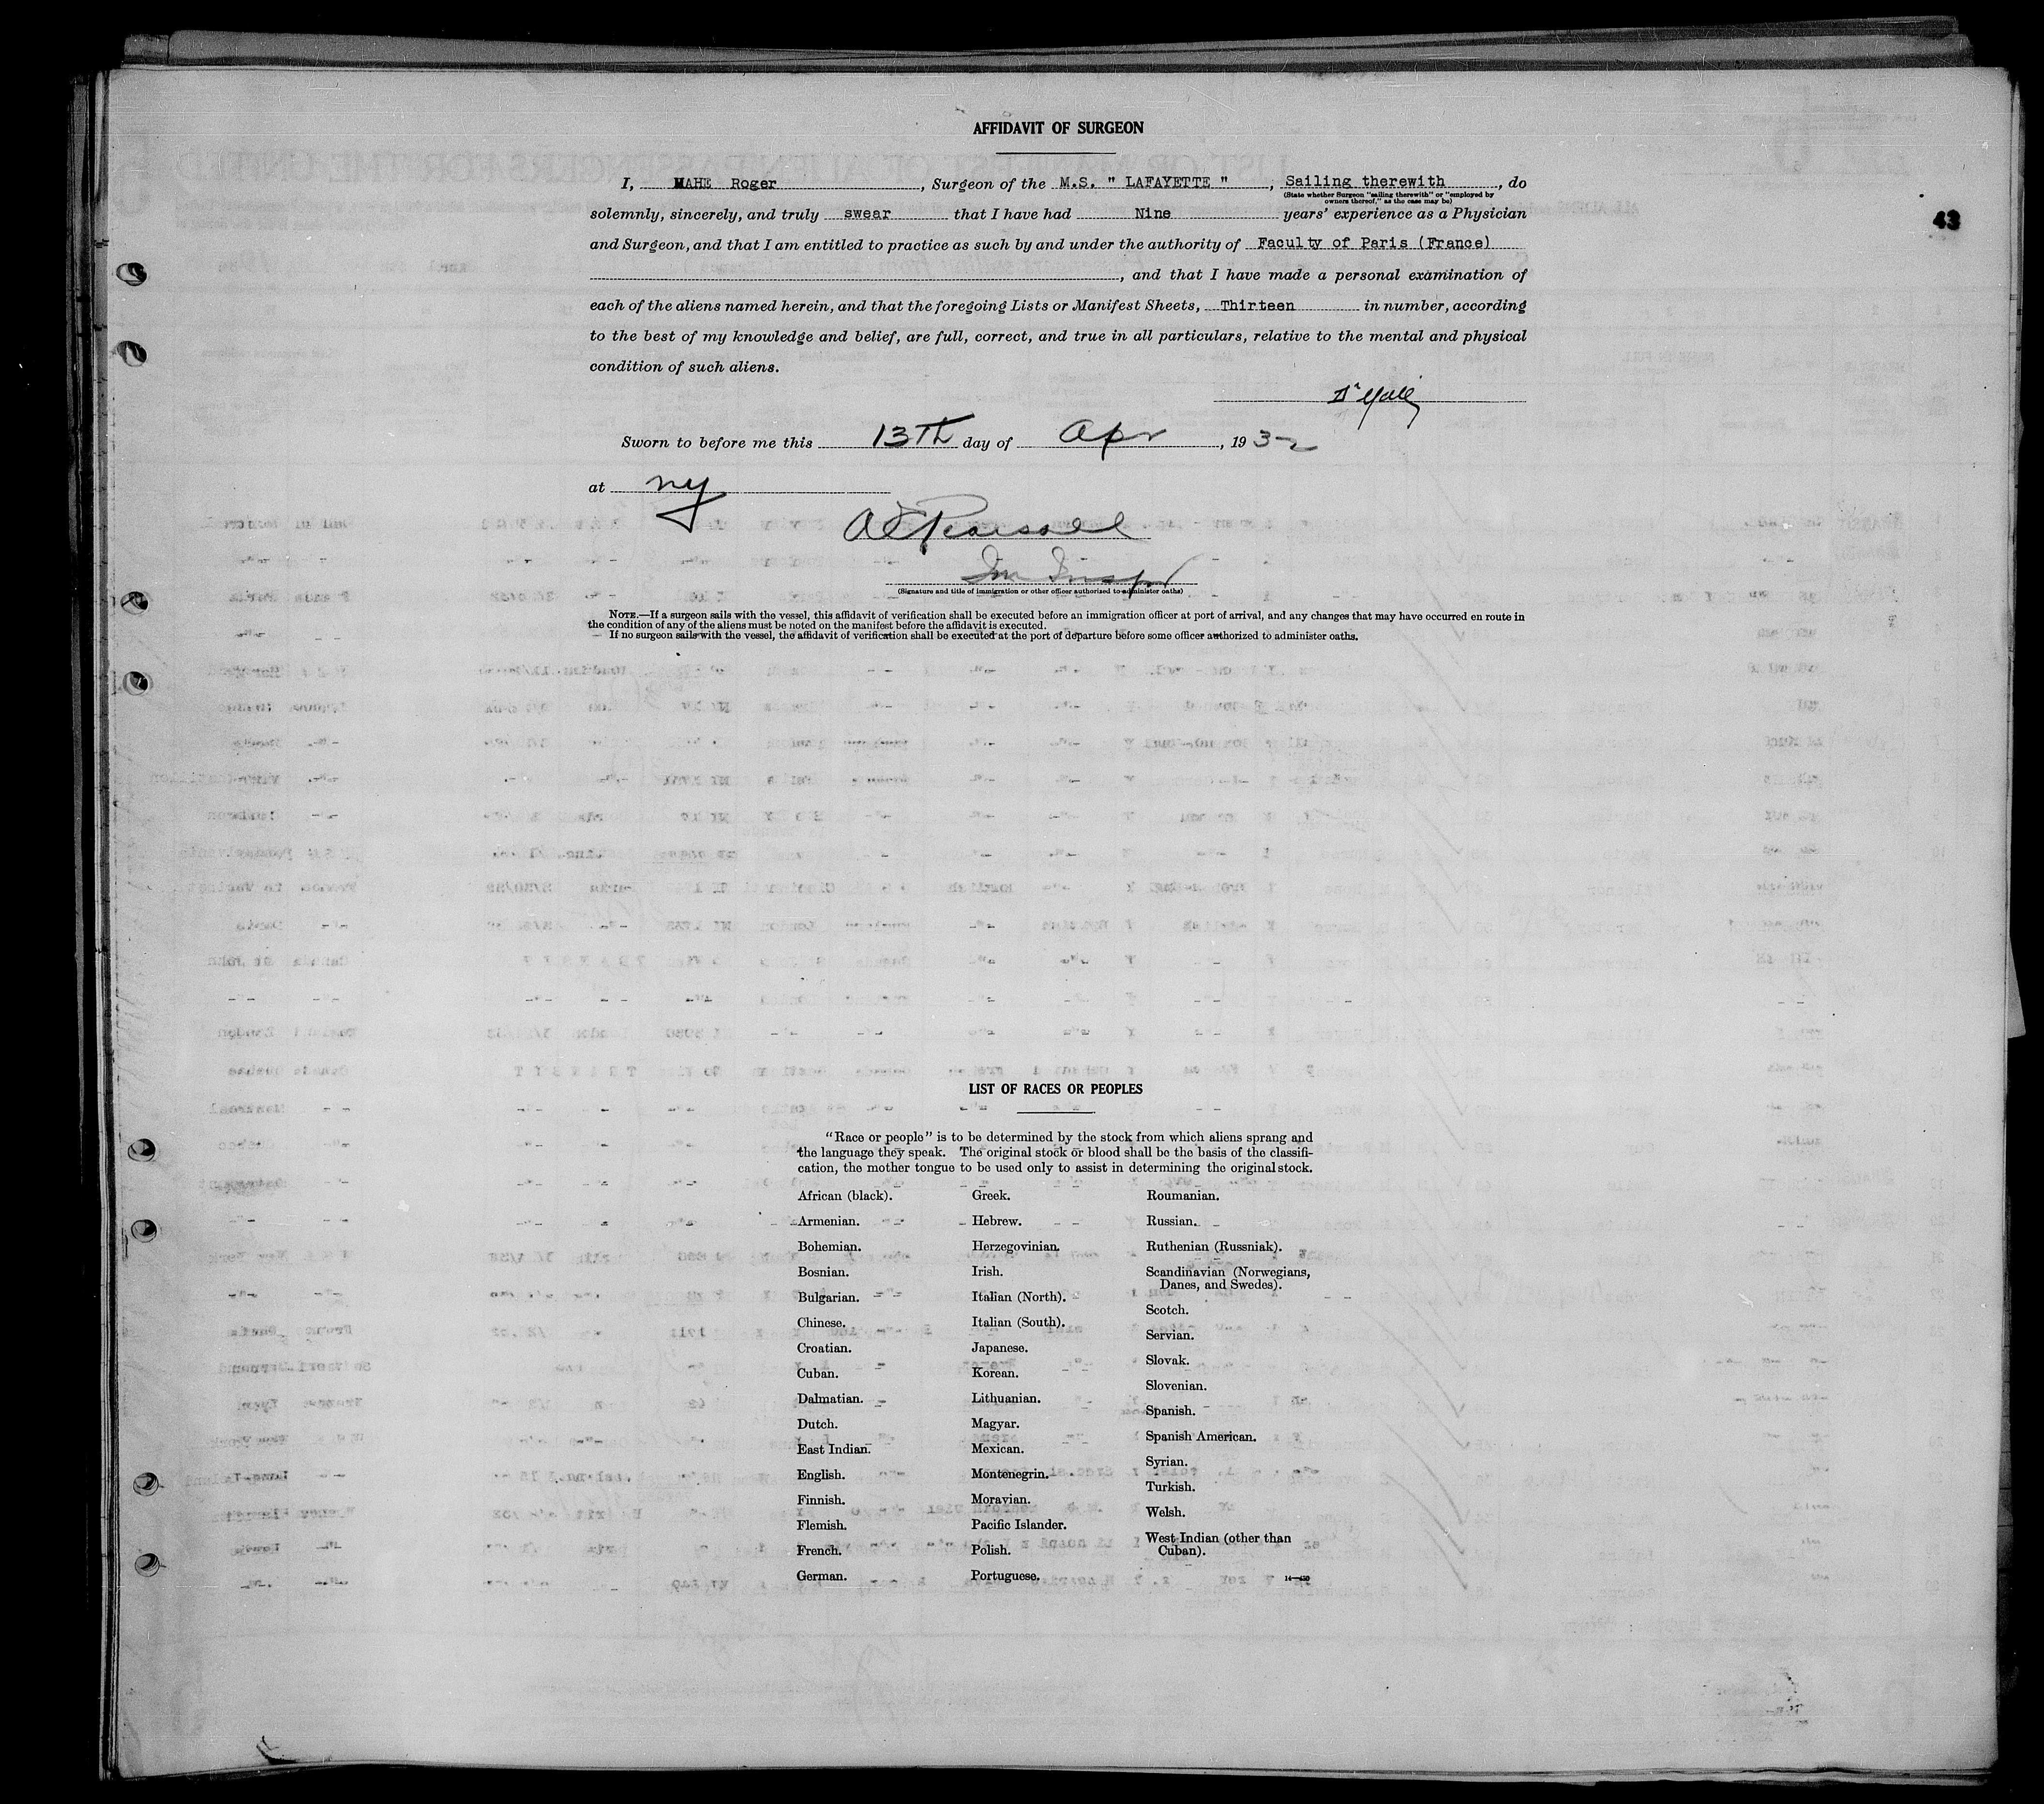 AFFIDAVIT OF SURGEON
43
I, MAHE Roger, Surgeon of the M.S. " LAFAYETTE ", Sailing therewith, do
(State whether Surgeon "sailing therewith" or "employed by
owners thereof," as the case may be)
solemnly, sincerely, and truly swear that I have had Nine years' experience as a Physician
and Surgeon, and that I am entitled to practice as such by and under the authority of Faculty of Paris (France)
, and that I have made a personal examination of
each of the aliens named herein, and that the foregoing Lists or Manifest Sheets, Thirteen in number, according
to the best of my knowledge and belief, are full, correct, and true in all particulars, relative to the mental and physical
condition of such aliens.
Sworn to before me this 13th day of Apr, 1932
at ny
(Signature and title of immigration or other officer authorized to administer oaths)
NOTE.—If a surgeon sails with the vessel, this affidavit of verification shall be executed before an immigration officer at port of arrival, and any changes that may have occurred en route in
the condition of any of the aliens must be noted on the manifest before the affidavit is executed.
If no surgeon sails with the vessel, the affidavit of verification shall be executed at the port of departure before some officer authorized to administer oaths.
LIST OF RACES OR PEOPLES
"Race or people" is to be determined by the stock from which aliens sprang and
the language they speak. The original stock or blood shall be the basis of the classifi-
cation, the mother tongue to be used only to assist in determining the original stock.
African (black).
Armenian.
Bohemian.
Bosnian.
Bulgarian.
Chinese.
Croatian.
Cuban.
Dalmatian.
Dutch.
East Indian.
English.
Finnish.
Flemish.
French.
German.
Greek.
Hebrew.
Herzegovinian.
Irish.
Italian (North).
Italian (South).
Japanese.
Korean.
Lithuanian.
Magyar.
Mexican.
Montenegrin.
Moravian.
Pacific Islander.
Polish.
Portuguese.
Roumanian.
Russian.
Ruthenian (Russniak).
Scandinavian (Norwegians,
Danes, and Swedes).
Scotch.
Servian.
Slovak.
Slovenian.
Spanish.
Spanish American.
Syrian.
Turkish.
Welsh.
West Indian (other than
Cuban).